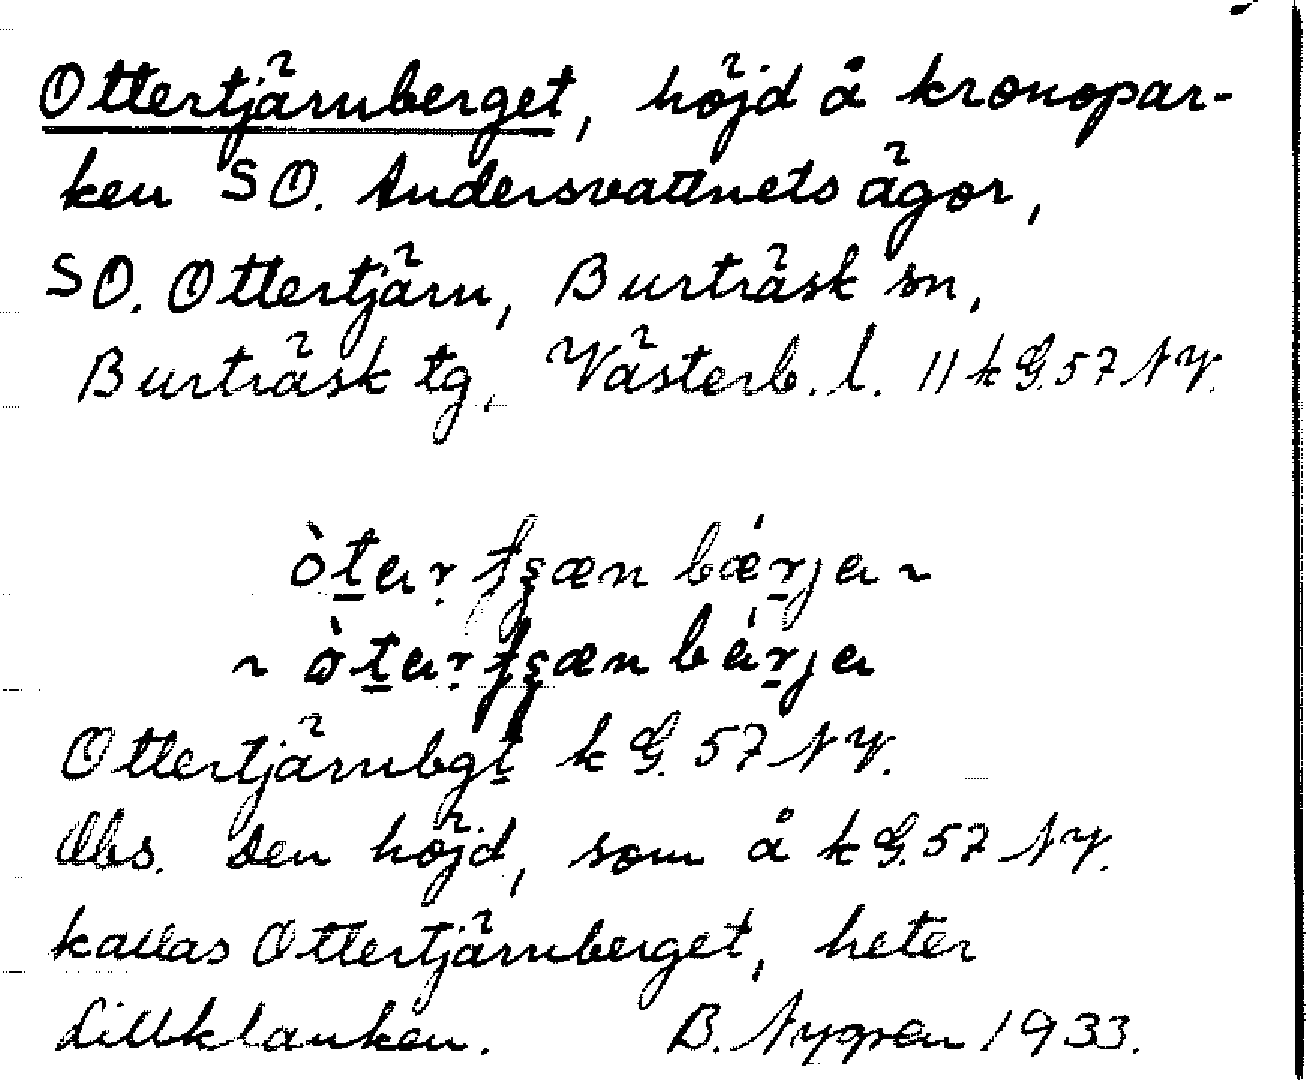 Ottertjärnberget, höjd å kronopar-
ken SO. Andersvattnets ägor,
SO. Ottertjärn, Burträsk sn,
Burträsk tg, Västerb. l. 11 k G. 57 NV.
òtar tʂæn bǽrja ~
~ òtar tʂæn bárja
Ottertjärnbgt k G. 57 NV.
Obs. Den höjd, som å k G. 57 NV.
kallas Ottertjärnberget, heter
Lillklanken. B. Nygren 1933.